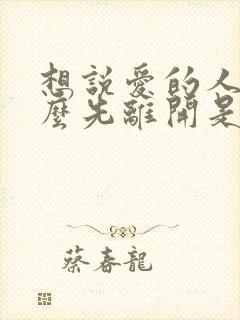 想說愛的人
麼先離開是
蔡春龍